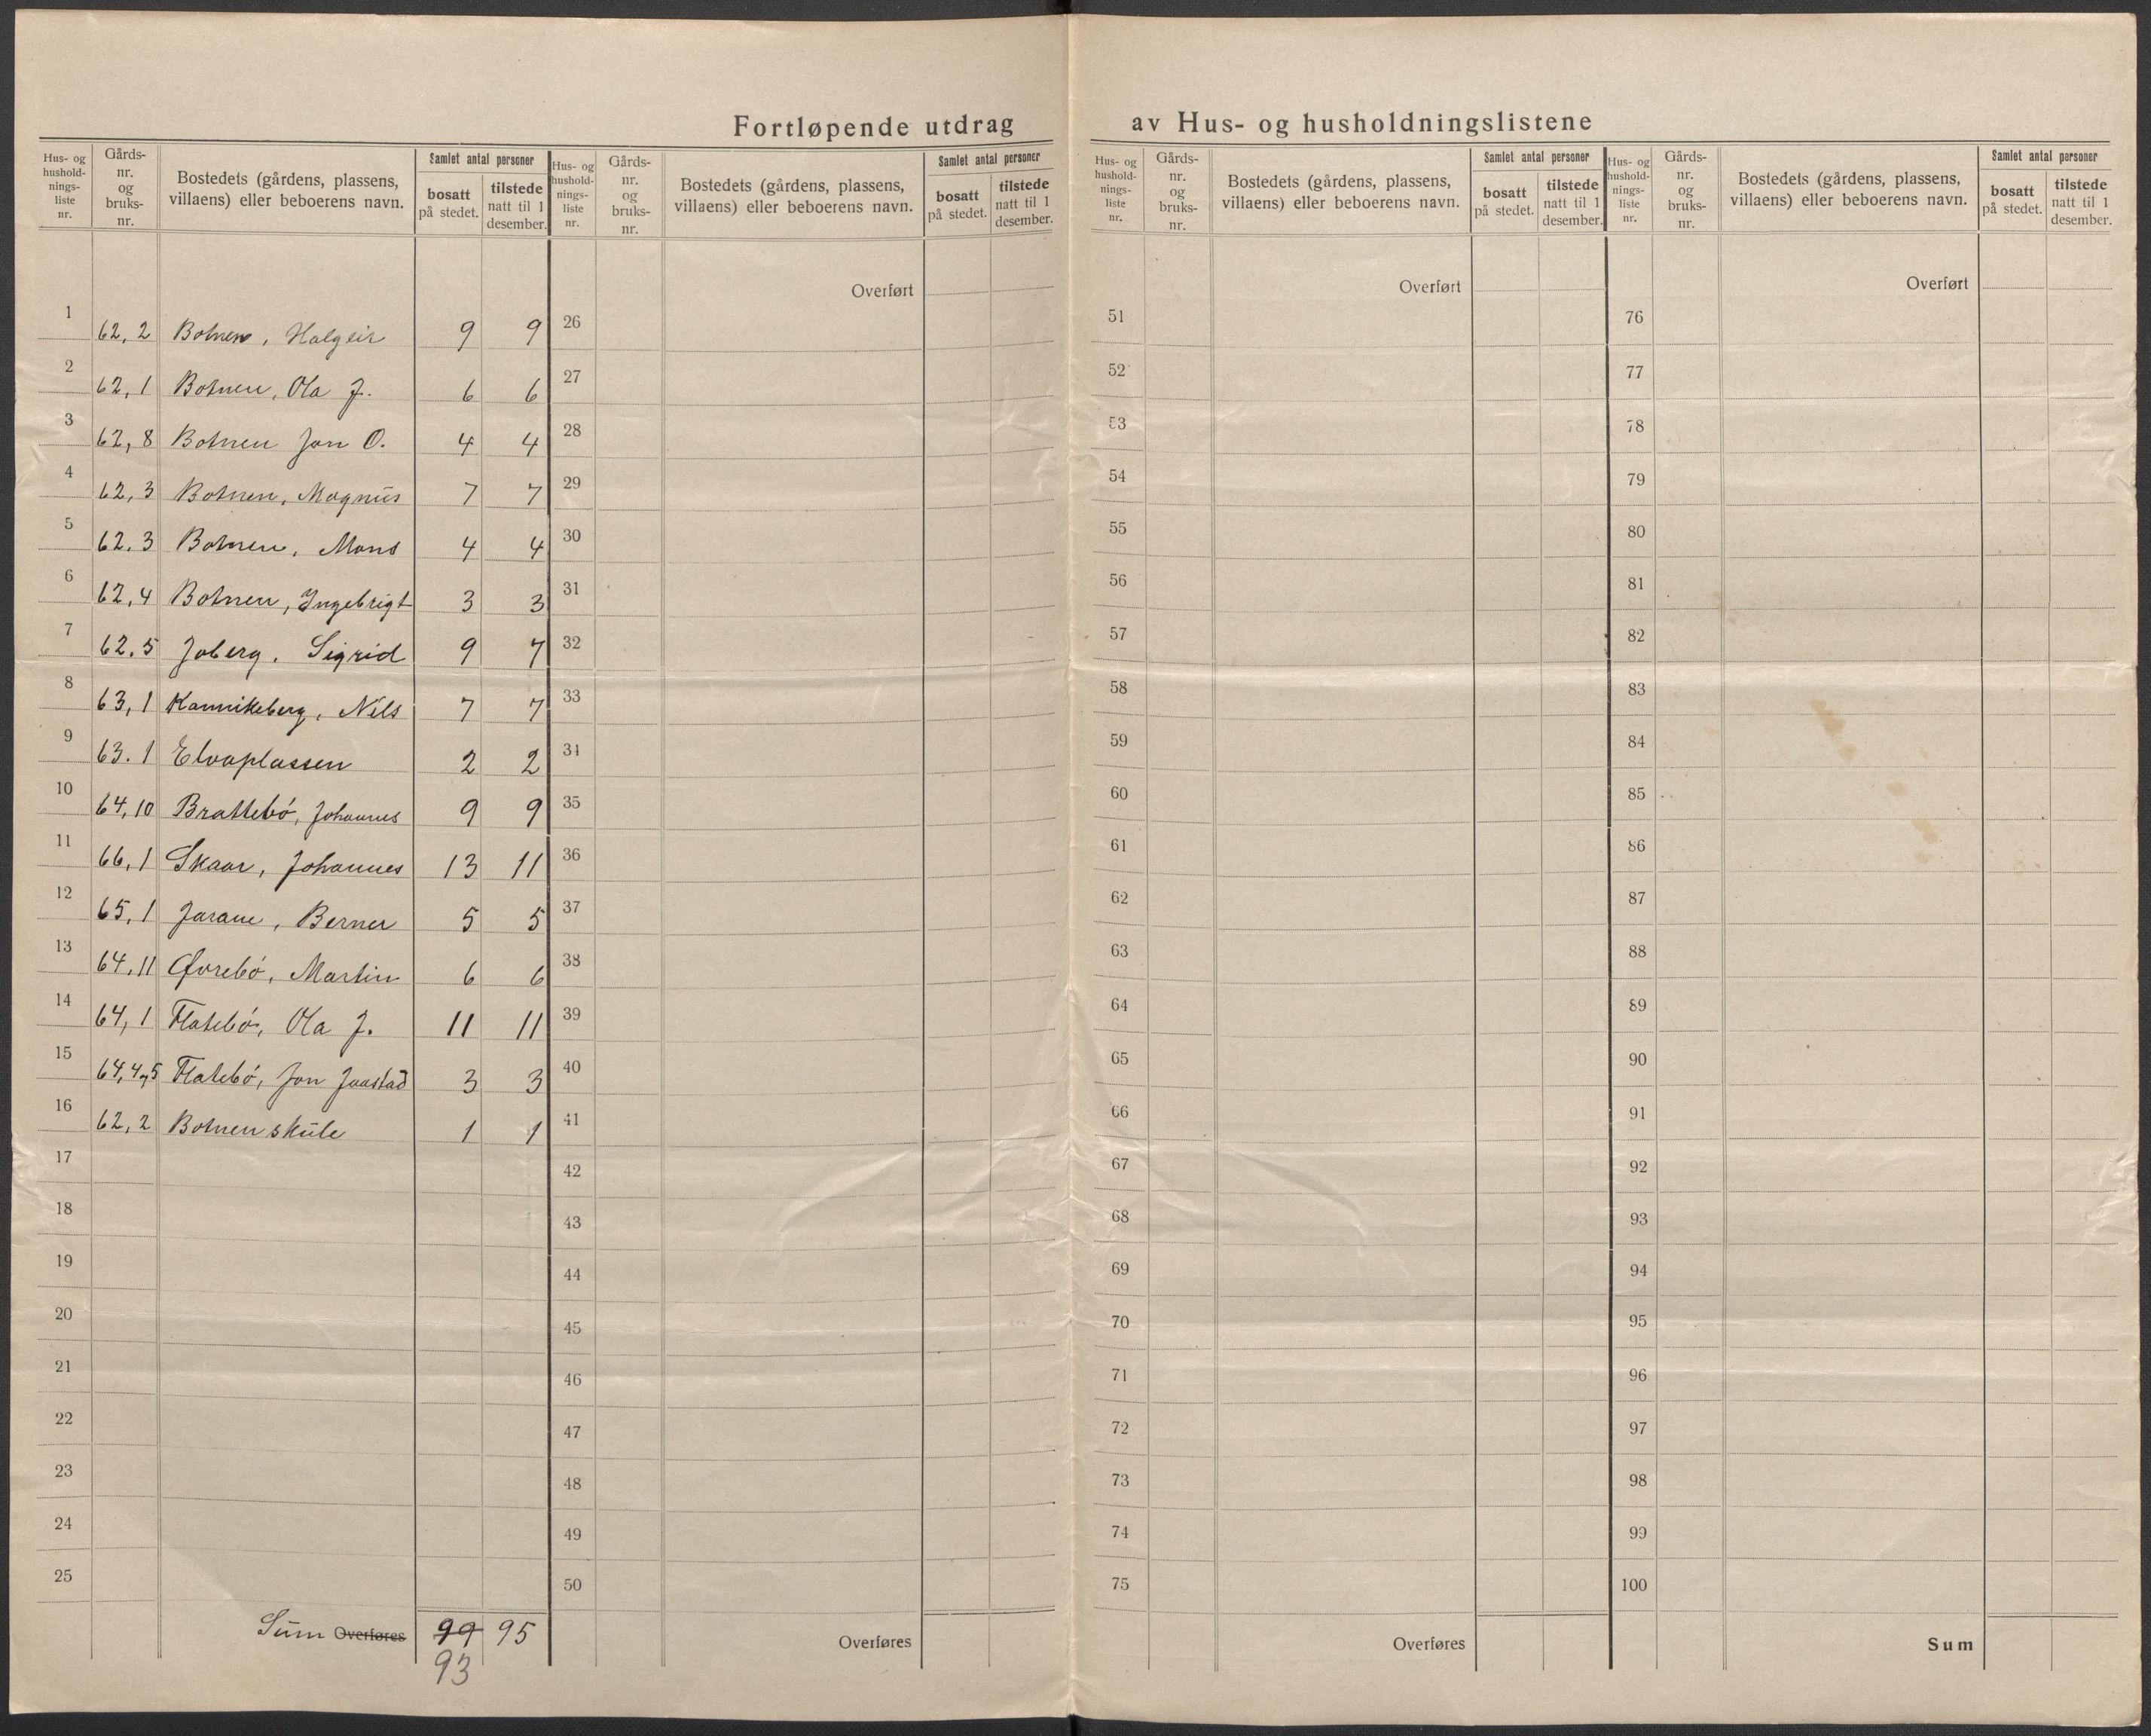 Fortløpende utdrag av Hus- og husholdningslistene
Hus- og hushold-nings-liste nr. Gårds-nr. og bruks-nr. Bostedets (gårdens, plassens, villaens) eller beboerens navn. Samlet antal personer bosatt på stedet. tilstede natt til 1 desember.
1 62,2 Botnen, Halgeir 9 9
2 62,1 Botnen, Ola J. 6 6
3 62,8 Botnen Jon O. 4 4
4 62,3 Botnen, Magnus 7 7
5 62.3 Botnen, Mons 4 4
6 62,4 Botnen, Ingebrigt 3 3
7 62.5 Joberg, Sigrid 9 7
8 63,1 Kannikeberg, Nils 7 7
9 63.1 Elvaplassen 2 2
10 64,10 Brattebó, Johannes 9 9
11 66,1 Skaar, Johannes 13 11
12 65,1 Jarane, Berner 5 5
13 64,11 Øvrebó, Martin 6 6
14 64,1 Flatebó, Ola J. 11 11
15 64,4,5 Flatebó, Jon Jaastad 3 3
16 62,2 Botnen skule 1 1
17
18
19
20
21
22
23
24
25
Sum Overføres 99 95
93
Hus- og hushold-nings-liste nr. Gårds-nr. og bruks-nr. Bostedets (gårdens, plassens, villaens) eller beboerens navn. Samlet antal personer bosatt på stedet. tilstede natt til 1 desember.
Overført
26
27
28
29
30
31
32
33
34
35
36
37
38
39
40
41
42
43
44
45
46
47
48
49
50
Overføres
Hus- og hushold-nings-liste nr. Gårds-nr. og bruks-nr. Bostedets (gårdens, plassens, villaens) eller beboerens navn. Samlet antal personer bosatt på stedet. tilstede natt til 1 desember.
Overført
51
52
53
54
55
56
57
58
59
60
61
62
63
64
65
66
67
68
69
70
71
72
73
74
75
Overføres
Hus- og hushold-nings-liste nr. Gårds-nr. og bruks-nr. Bostedets (gårdens, plassens, villaens) eller beboerens navn. Samlet antal personer bosatt på stedet. tilstede natt til 1 desember.
Overført
76
77
78
79
80
81
82
83
84
85
86
87
88
89
90
91
92
93
94
95
96
97
98
99
100
Sum